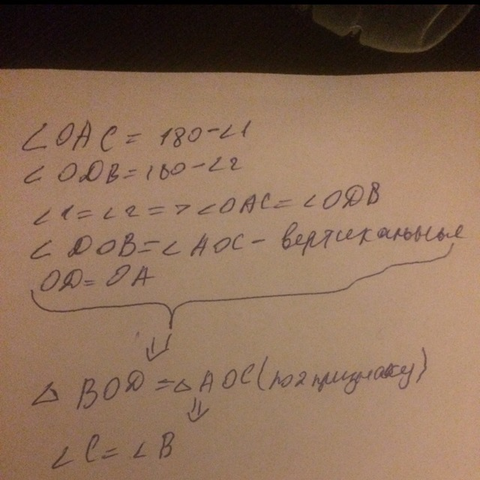 ∠OAC = 180-∠1
∠ODB = 180-∠2
∠1 = ∠2 => ∠OAC = ∠ODB
∠DOB = ∠AOC - вертикальные
OD = OA
⇓
△BOD = △AOC (по 2 признаку)
⇓
∠C = ∠B